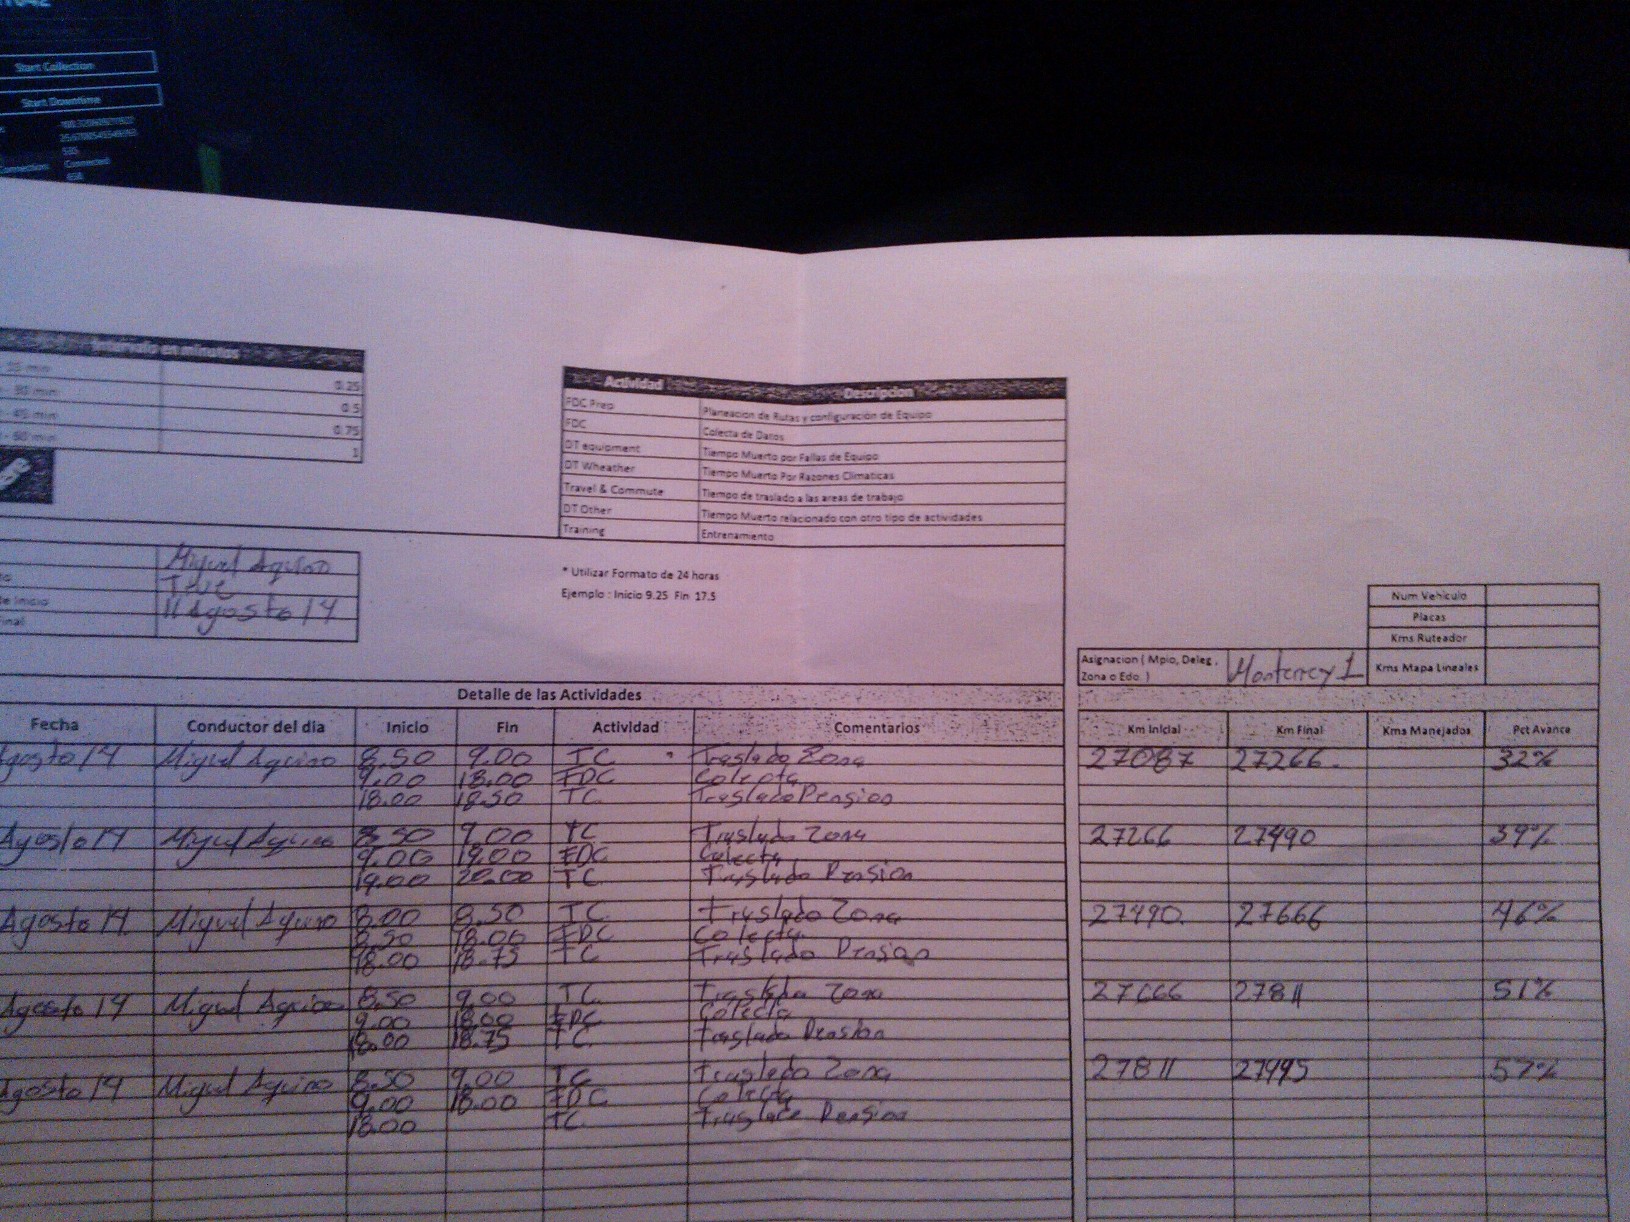 Start Collection
Start Downtime
Connected
Intervalo en minutos
0.25
30 min 0.5
45 min 0.75
60 min 1
Actividad Descripcion
FDC Prep Planeacion de Rutas y configuración de Equipo
FDC Colecta de Datos
DT equipment Tiempo Muerto por Fallas de Equipo
DT Wheather Tiempo Muerto Por Razones Climaticas
Travel & Commute Tiempo de traslado a las areas de trabajo
DT Other Tiempo Muerto relacionado con otro tipo de actividades
Training Entrenamiento
* Utilizar Formato de 24 horas
Ejemplo : Inicio 9.25 Fin 17.5
Miguel Aquino
de Inicio 11 Agosto 14
Num Vehiculo
Placas
Kms Ruteador
Kms Mapa Lineales
Asignacion ( Mpio, Deleg ,
Zona o Edo. ) Monterrey 1
Detalle de las Actividades
Fecha Conductor del dia Inicio Fin Actividad Comentarios Km Inicial Km Final Kms Manejados Pct Avance
Agosto 14 Miguel Aquino 8.50 9.00 TC Traslado Zona 27087 27266 32%
9.00 18.00 FDC Colecta
18.00 18.50 TC Traslado Pension
Agosto 14 Miguel Aquino 8.50 9.00 TC Traslado Zona 27266 27490 39%
9.00 19.00 FDC Colecta
19.00 20.00 TC Traslado Pension
Agosto 14 Miguel Aquino 8.00 8.50 TC Traslado Zona 27490 27666 46%
8.50 18.00 FDC Colecta
18.00 18.75 TC Traslado Pension
Agosto 14 Miguel Aquino 8.50 9.00 TC Traslado Zona 27666 27811 51%
9.00 18.00 FDC Colecta
18.00 18.75 TC Traslado Pension
Agosto 14 Miguel Aquino 8.50 9.00 TC Traslado Zona 27811 27995 57%
9.00 18.00 FDC Colecta
18.00 TC Traslado Pension